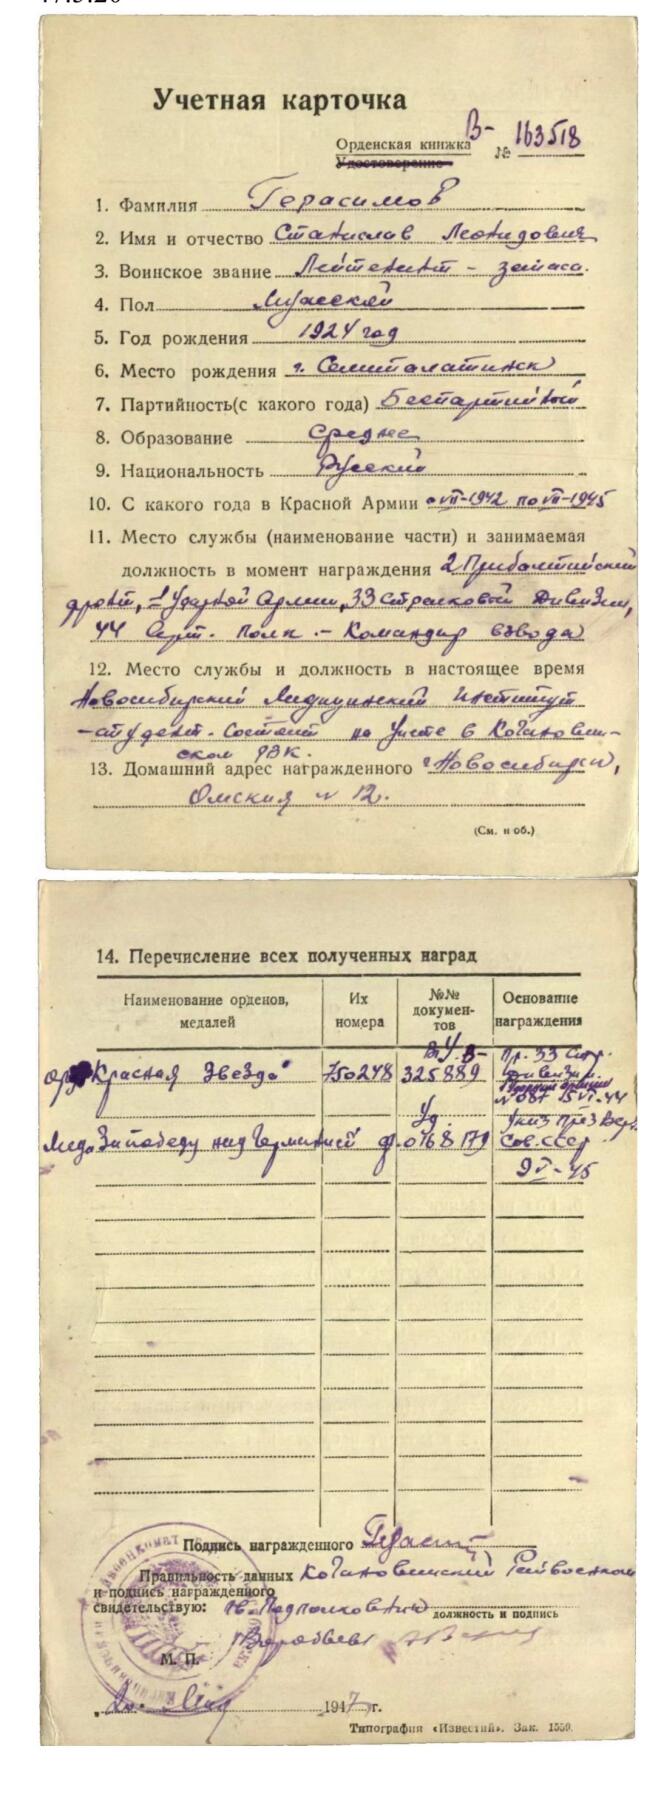 Учетная карточка
Орденская книжка В- № 163518
Удостоверение
1. Фамилия Герасимов
2. Имя и отчество Станислав Леонидович
3. Воинское звание Лейтенант - запаса.
4. Пол Мужской
5. Год рождения 1924 год
6. Место рождения г. Семипалатинск
7. Партийность(с какого года) Беспартийный
8. Образование среднее
9. Национальность Русский
10. С какого года в Красной Армии с VII-1942 по VII-1945
11. Место службы (наименование части) и занимаемая
должность в момент награждения 2 Прибалтийский
фронт, 1 Ударной Армии, 33 Стрелковой Дивизии,
44 Стрел. полк - Командир взвода
12. Место службы и должность в настоящее время
Новосибирский Медицинский Институт
-студент. Состоит на учете в Кагановичи-
ском РВК.
13. Домашний адрес награжденного г. Новосибирск,
Омская № 12.
(См. н об.)
14. Перечисление всех полученных наград
Наименование орденов, медалей
Их номера
№№ документов
Основание награждения
"Красная Звезда" 750248 В- 325889 Пр. 33 Стр.
Дивизии
Ударной армии
№ 087 15 VI-44
Уд. Указ През Верх.
Меда За победу над Германией ф. 0768179 Сов. СССР
9 V-45
Подпись награжденного
Правильность данных Кагановичский Райвоенком
и подпись награжденного
свидетельствую: гв. Подполковник
должность и подпись
М. П.
1947 г.
Типография «Известий». Зак. 1550.